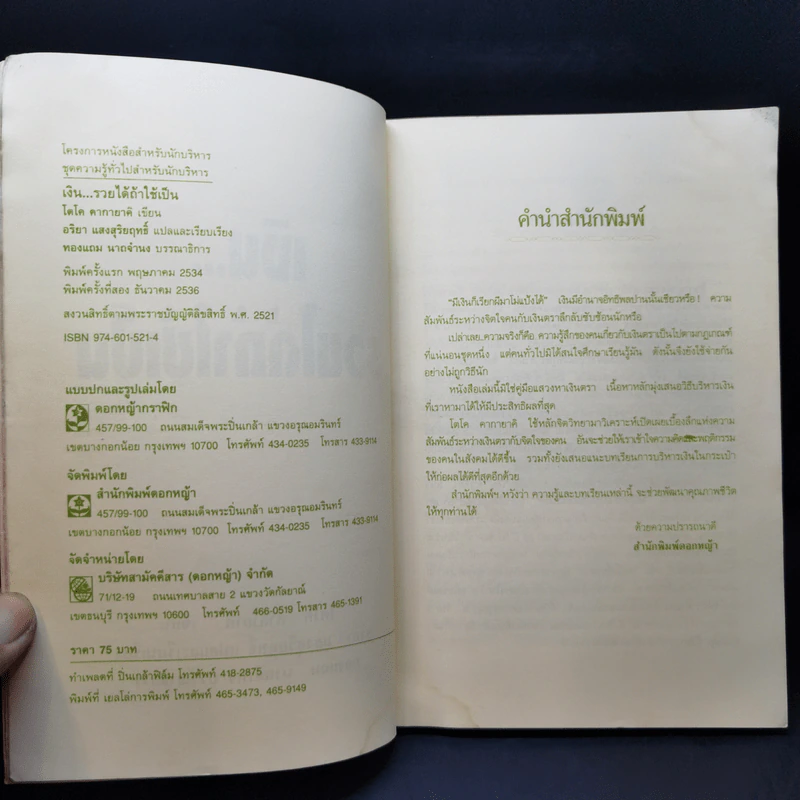 โครงการหนังสือสำหรับนักบริหาร
ชุดความรู้ทั่วไปสำหรับนักบริหาร
เงิน...รวยได้ถ้าใช้เป็น
โตโค คากายาคิ เขียน
อริยา แสงสุริยฤทธิ์ แปลและเรียบเรียง
ทองแถม นาถจำนง บรรณาธิการ
พิมพ์ครั้งแรก พฤษภาคม 2534
พิมพ์ครั้งที่สอง ธันวาคม 2536
สงวนสิทธิ์ตามพระราชบัญญัติลิขสิทธิ์ พ.ศ. 2521
ISBN 974-601-521-4
แบบปกและรูปเล่มโดย
ดอกหญ้ากราฟิก
457/99-100 ถนนสมเด็จพระปิ่นเกล้า แขวงอรุณอมรินทร์
เขตบางกอกน้อย กรุงเทพฯ 10700 โทรศัพท์ 434-0235 โทรสาร 433-9114
จัดพิมพ์โดย
สำนักพิมพ์ดอกหญ้า
457/99-100 ถนนสมเด็จพระปิ่นเกล้า แขวงอรุณอมรินทร์
เขตบางกอกน้อย กรุงเทพฯ 10700 โทรศัพท์ 434-0235 โทรสาร 433-9114
จัดจำหน่ายโดย
บริษัทสามัคคีสาร (ดอกหญ้า) จำกัด
71/12-19 ถนนเทศบาลสาย 2 แขวงวัดกัลยาณ์
เขตธนบุรี กรุงเทพฯ 10600 โทรศัพท์ 466-0519 โทรสาร 465-1391
ราคา 75 บาท
ทำเพลตที่ ปิ่นเกล้าฟิล์ม โทรศัพท์ 418-2875
พิมพ์ที่ เยลโล่การพิมพ์ โทรศัพท์ 465-3473, 465-9149
คำนำสำนักพิมพ์
"มีเงินก็เรียกผีมาโม่แป้งได้" เงินมีอำนาจอิทธิพลปานนั้นเชียวหรือ! ความ
สัมพันธ์ระหว่างจิตใจคนกับเงินตราลึกลับซับซ้อนนักหรือ
เปล่าเลย..ความจริงก็คือ ความรู้สึกของคนเกี่ยวกับเงินตราเป็นไปตามกฎเกณฑ์
ที่แน่นอนชุดหนึ่ง แต่คนทั่วไปมิได้สนใจศึกษาเรียนรู้มัน ดังนั้นจึงยังใช้จ่ายกัน
อย่างไม่ถูกวิธีนัก
หนังสือเล่มนี้มิใช่คู่มือแสวงหาเงินตรา เนื้อหาหลักมุ่งเสนอวิธีบริหารเงิน
ที่เราหามาได้ให้มีประสิทธิผลที่สุด
โตโค คากายาคิ ใช้หลักจิตวิทยามาวิเคราะห์เปิดเผยเบื้องลึกแห่งความ
สัมพันธ์ระหว่างเงินตรากับจิตใจของคน อันจะช่วยให้เราเข้าใจความคิดและพฤติกรรม
ของคนในสังคมได้ดีขึ้น รวมทั้งยังเสนอแนะบทเรียนการบริหารเงินในกระเป๋า
ให้ก่อผลได้ดีที่สุดอีกด้วย
สำนักพิมพ์ฯ หวังว่า ความรู้และบทเรียนเหล่านี้ จะช่วยพัฒนาคุณภาพชีวิต
ให้ทุกท่านได้
ด้วยความปรารถนาดี
สำนักพิมพ์ดอกหญ้า